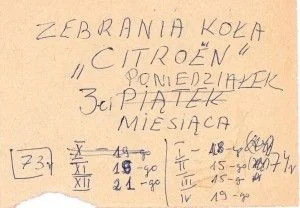 ZEBRANIA KOŁA
„CITROËN"
PONIEDZIAŁEK
3ci PIĄTEK
MIESIĄCA
73r X – 19-go I – 18-go 74r
XI 19-go II – 15-go
XII 21-go III 15-go
IV 19-go